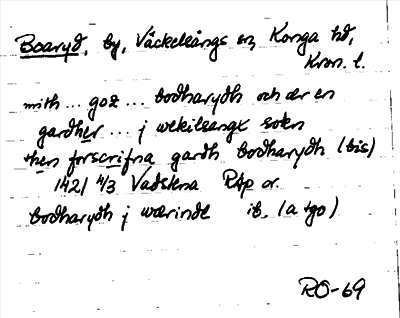 Boaryd, by, Väckelsångs sn, Konga hd,
Kron. l.
mith ... goz ... bodharydh och ær en
gardher ... j wekilsangx sokn
then forscrifna gardh bodharydh (bis)
1421 4/3 Vadstena RAp or.
bodharydh j wærindt ib. (a tgo)
RO-69